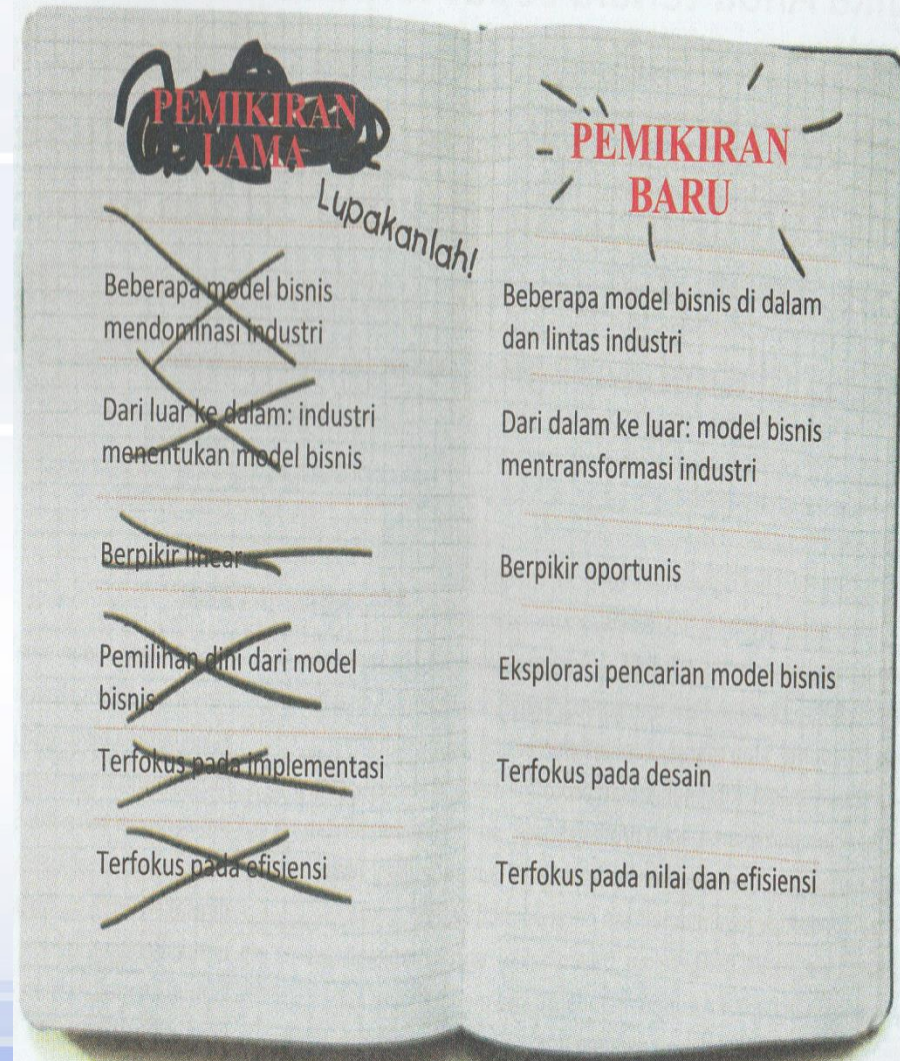 PEMIKIRAN
LAMA
Lupakanlah!
Beberapa model bisnis
mendominasi industri
Dari luar ke dalam: industri
menentukan model bisnis
Berpikir linear
Pemilihan dini dari model
bisnis
Terfokus pada implementasi
Terfokus pada efisiensi
PEMIKIRAN
BARU
Beberapa model bisnis di dalam
dan lintas industri
Dari dalam ke luar: model bisnis
mentransformasi industri
Berpikir oportunis
Eksplorasi pencarian model bisnis
Terfokus pada desain
Terfokus pada nilai dan efisiensi